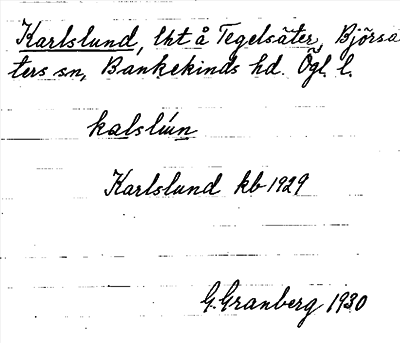 Karlslund, lht å Tegelsäter, Björsä-
ters sn, Bankekinds hd. Ögl. l.
kalslún
Karlslund kb 1929
G. Granberg 1930